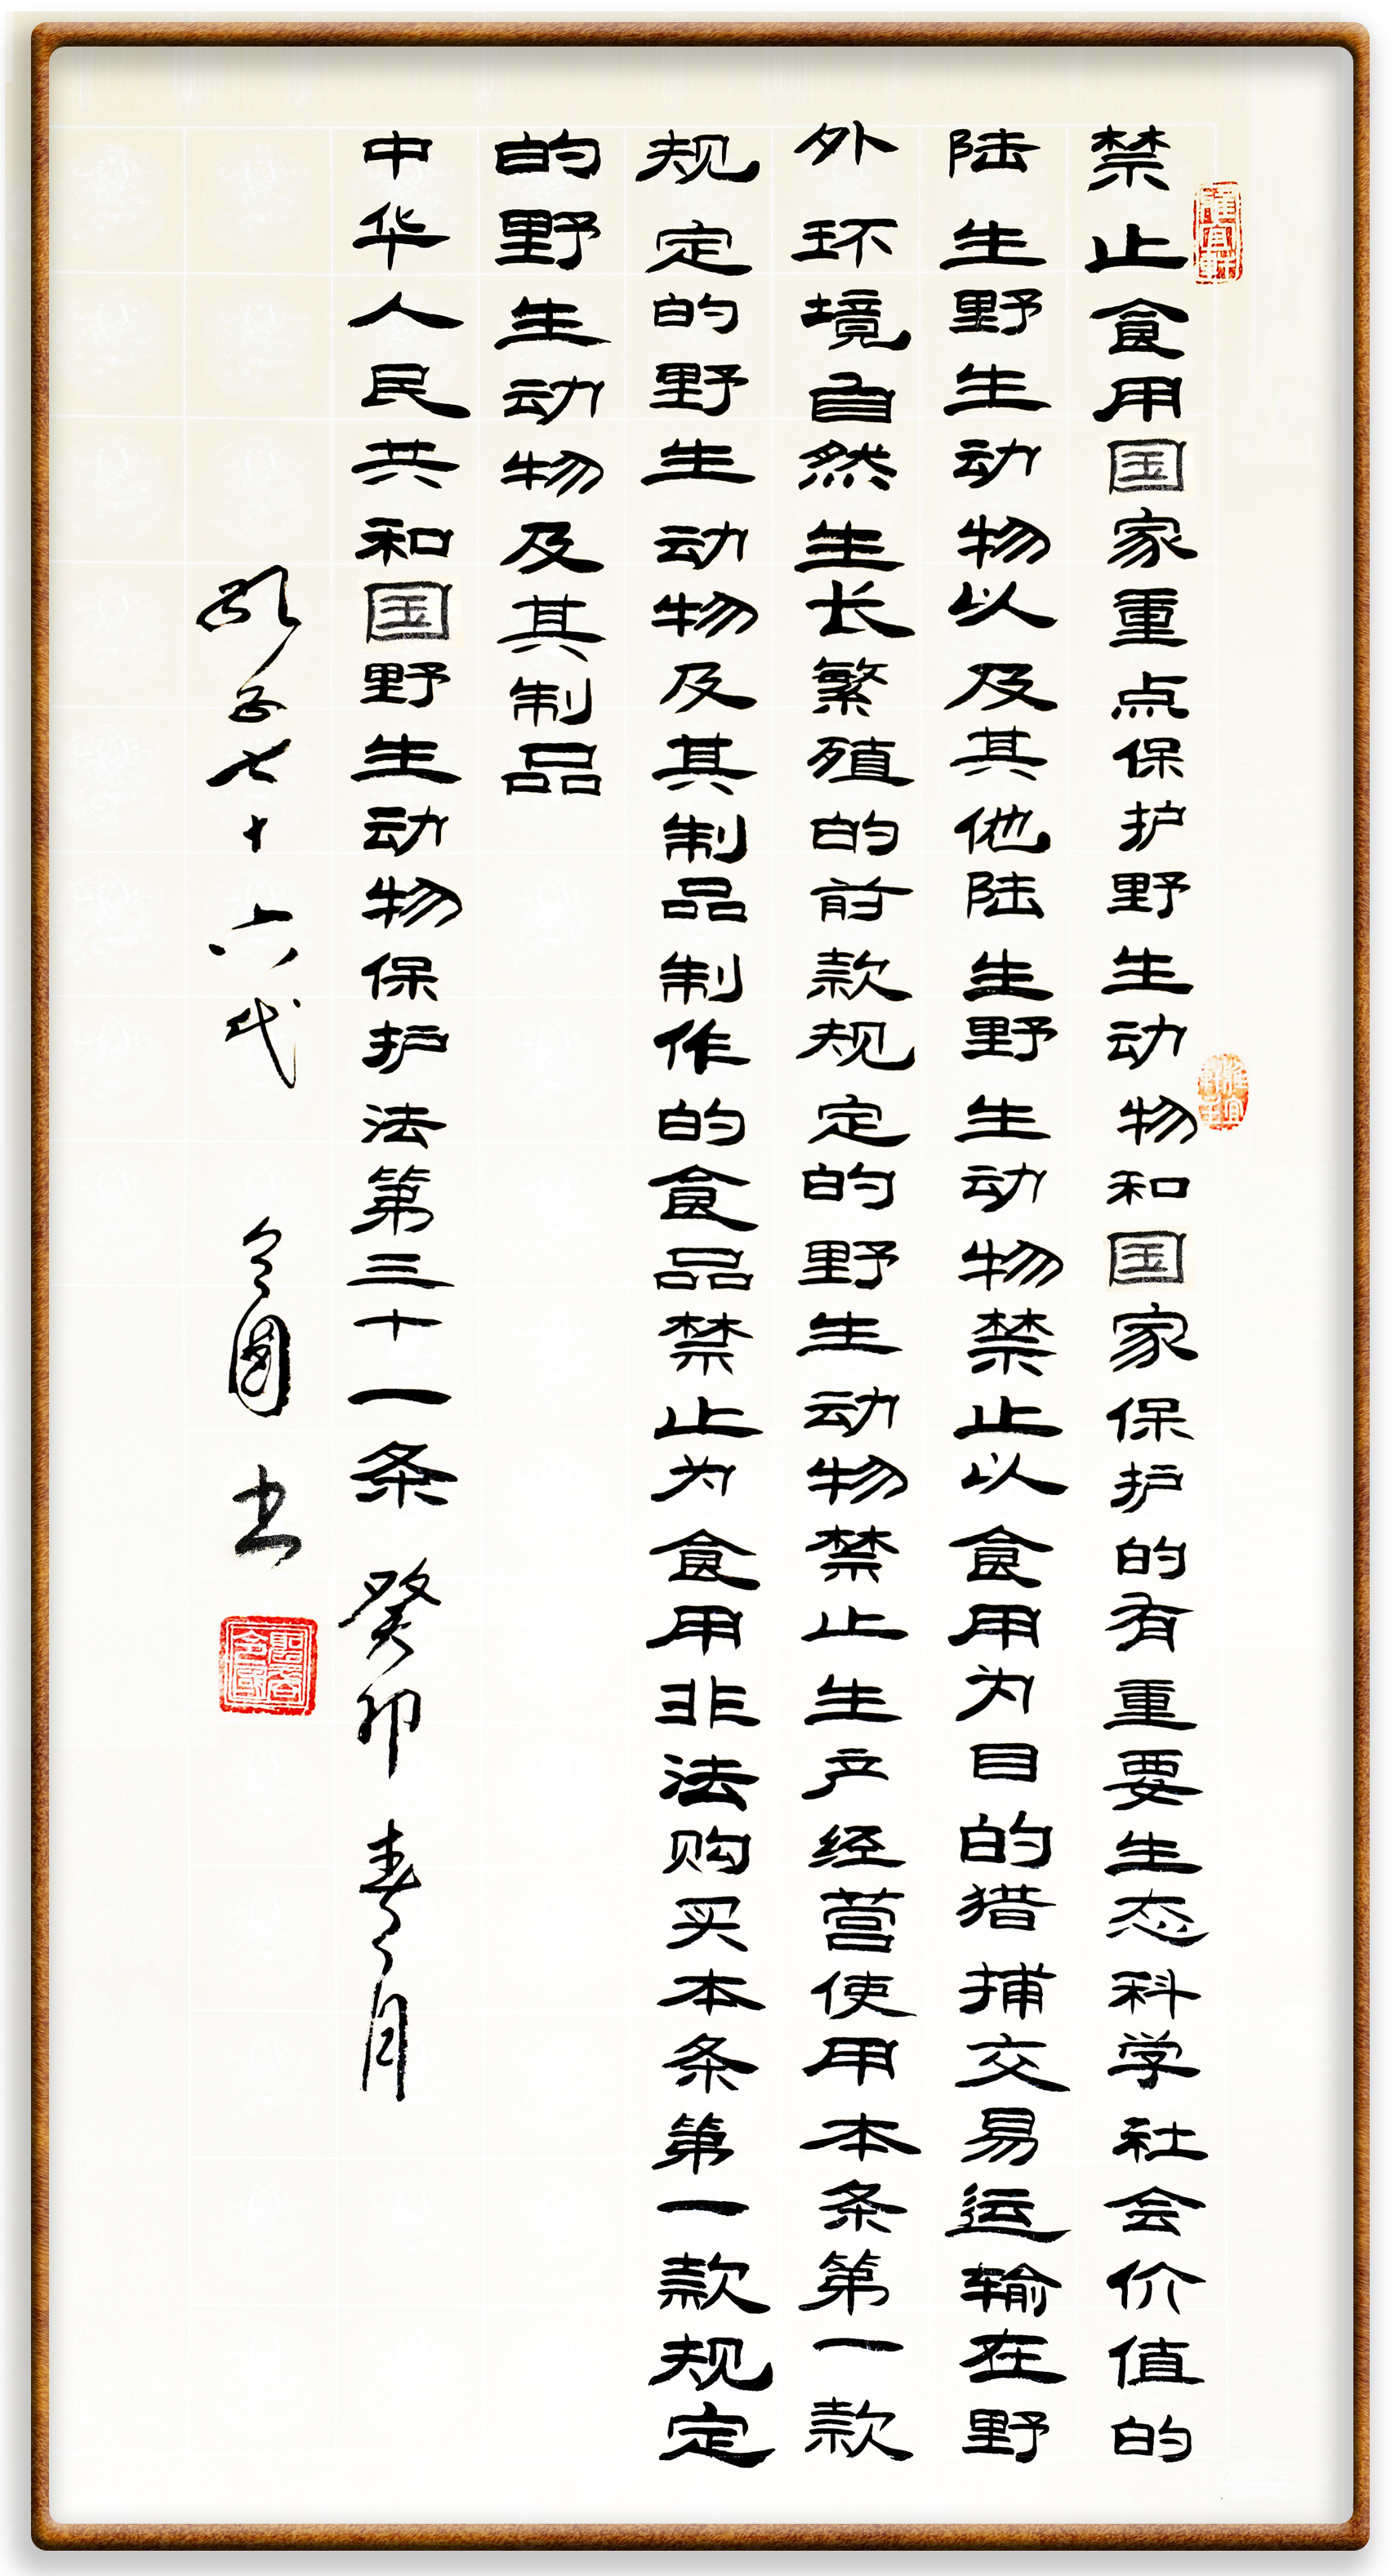 雅宜軒
禁止食用国家重点保护野生动物和国家保护的有重要生态科学社会价值的
雅宜軒主
陆生野生动物以及其他陆生野生动物禁止以食用为目的猎捕交易运输在野
外环境自然生长繁殖的前款规定的野生动物禁止生产经营使用本条第一款
规定的野生动物及其制品制作的食品禁止为食用非法购买本条第一款规定
的野生动物及其制品
中华人民共和国野生动物保护法第三十一条 癸卯 春月
七十六代 令國 书
聖裔令國